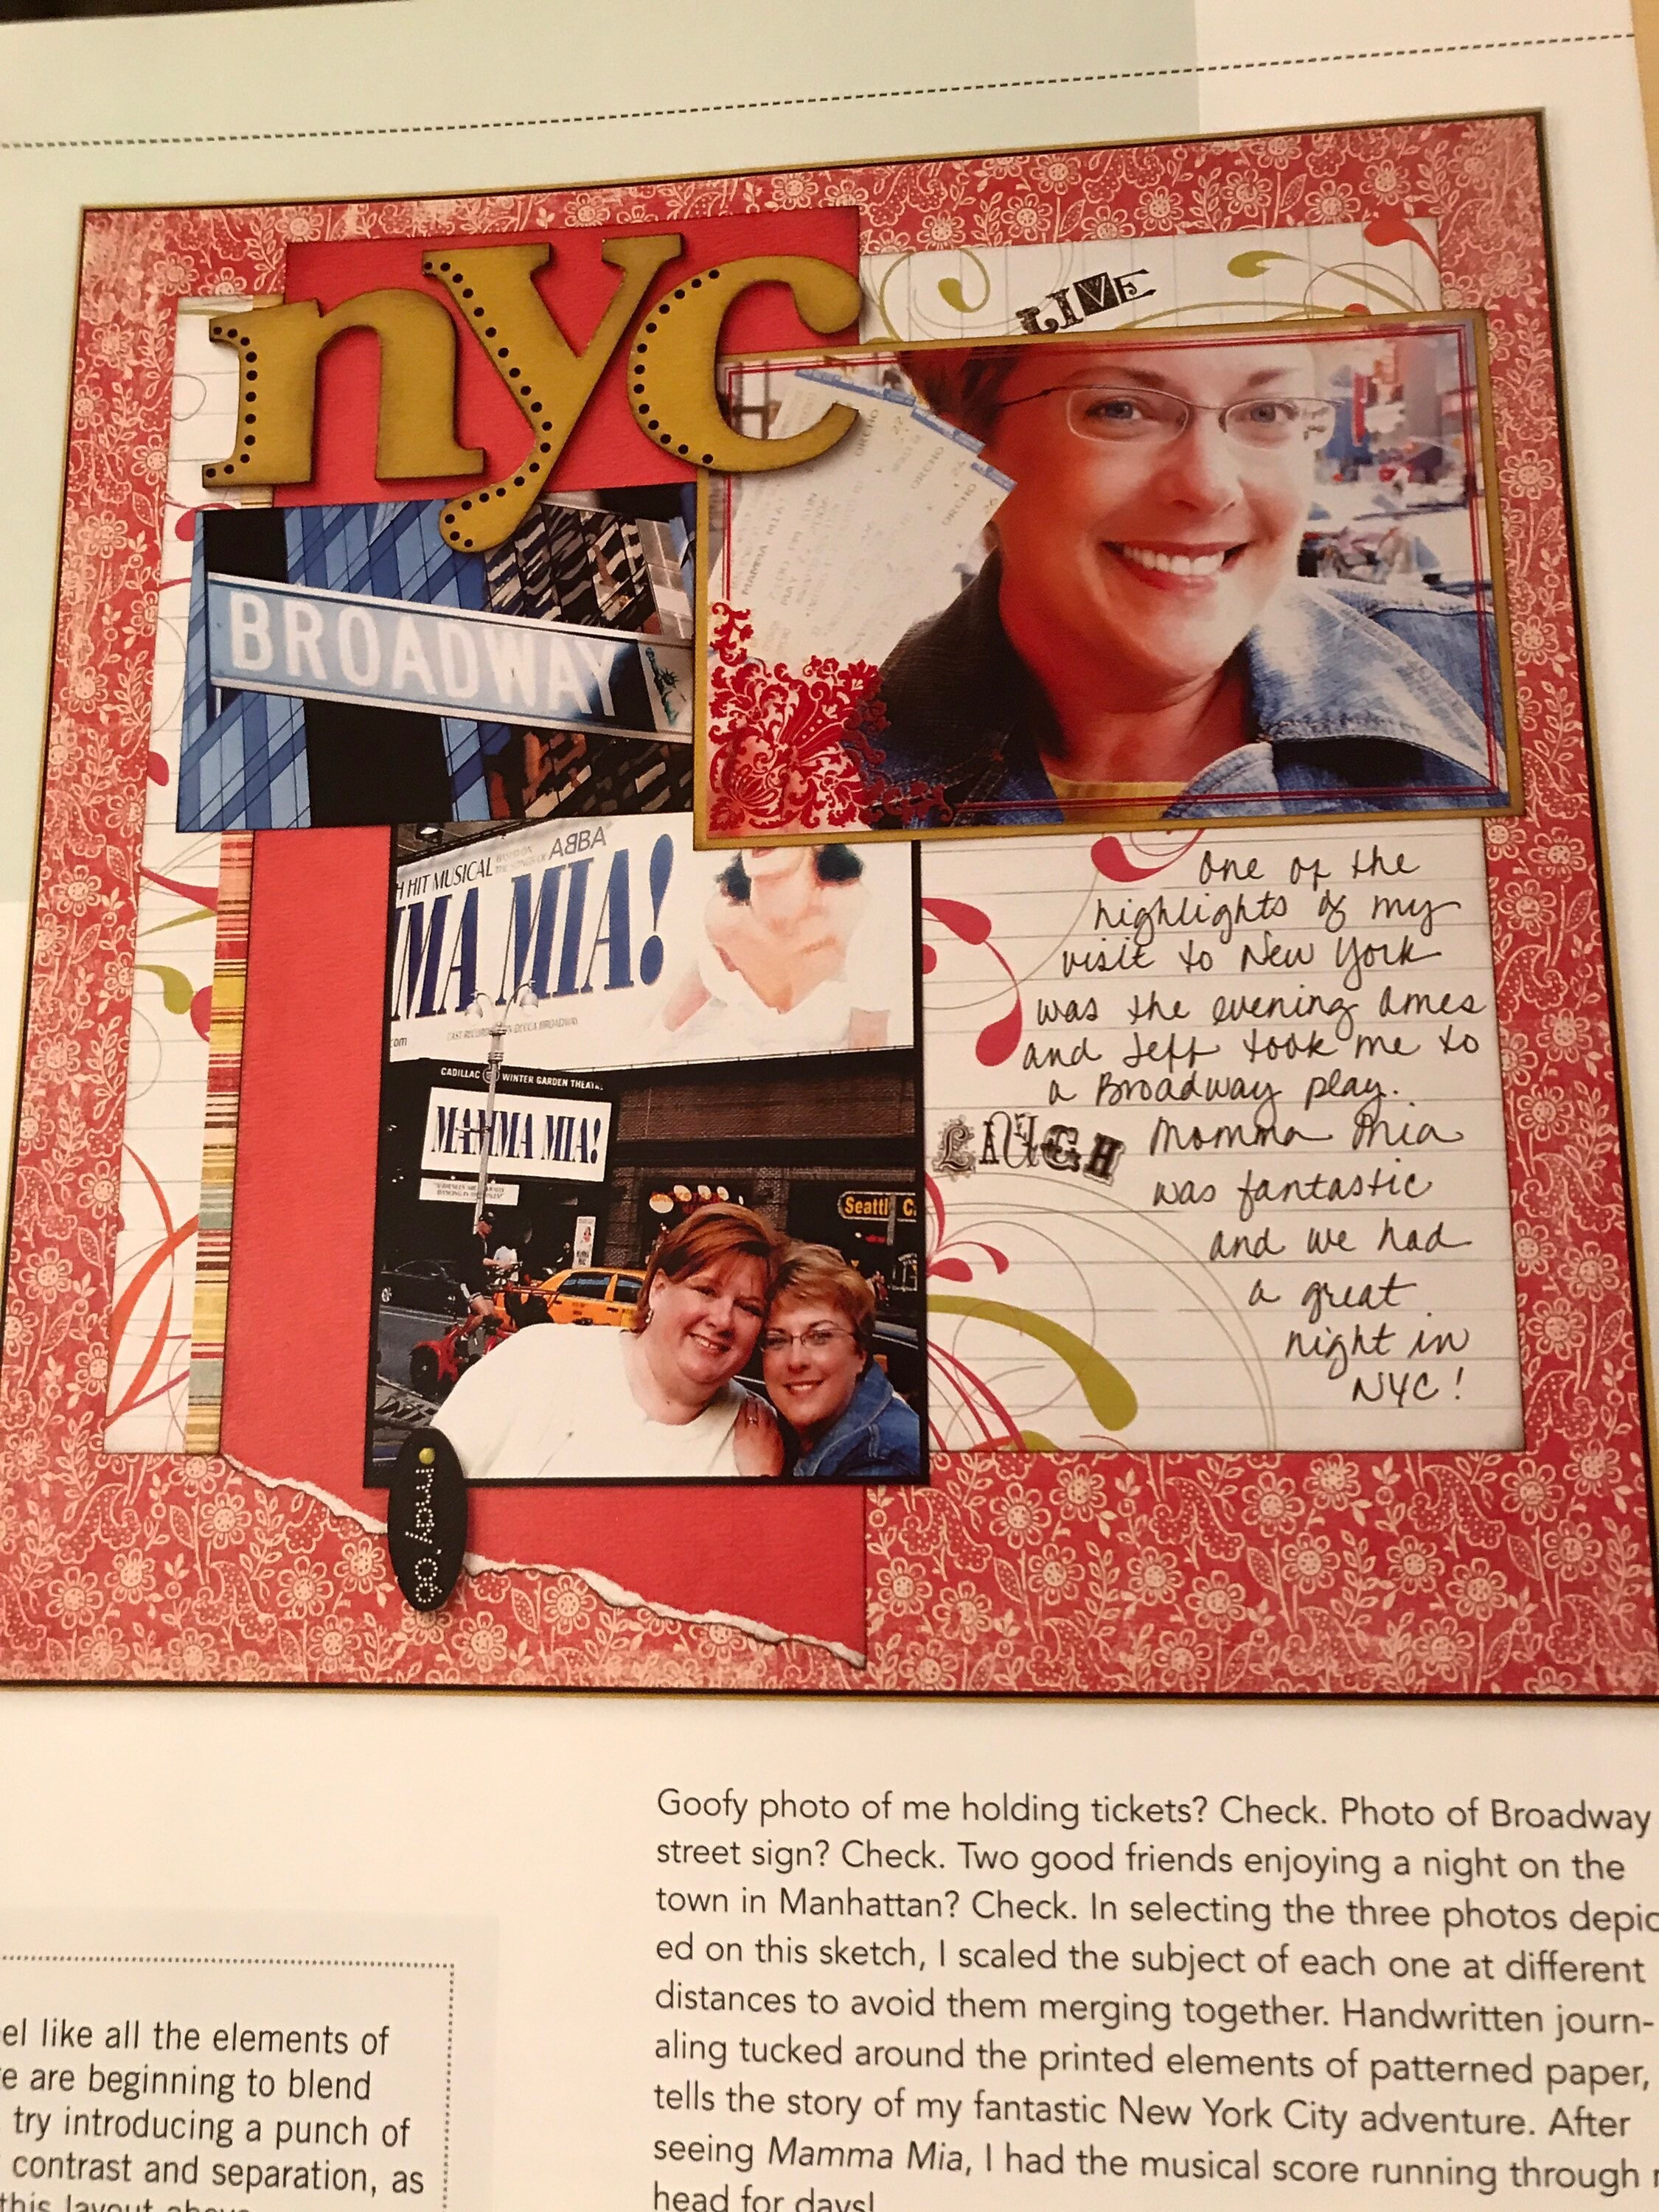 nyc
LIVE
BROADWAY
MAMMA MIA!
ORCHO
22
ORCHO
24
ORCHO
26
H HIT MUSICAL BASED ON THE SONGS OF ABBA
MA MIA!
CAST RECORDING ON DECCA BROADWAY
.com
CADILLAC WINTER GARDEN THEATR
MAMMA MIA!
Seattl C.
may'06
One of the
highlights of my
visit to New York
was the evening Ames
and Jeff took me to
a Broadway play.
LAUGH
Momma Mia
was fantastic
and we had
a great
night in
NYC!
Goofy photo of me holding tickets? Check. Photo of Broadway
street sign? Check. Two good friends enjoying a night on the
town in Manhattan? Check. In selecting the three photos depic
ed on this sketch, I scaled the subject of each one at different
distances to avoid them merging together. Handwritten journ-
aling tucked around the printed elements of patterned paper,
tells the story of my fantastic New York City adventure. After
seeing Mamma Mia, I had the musical score running through
head for days!
el like all the elements of
e are beginning to blend
try introducing a punch of
contrast and separation, as
this layout above